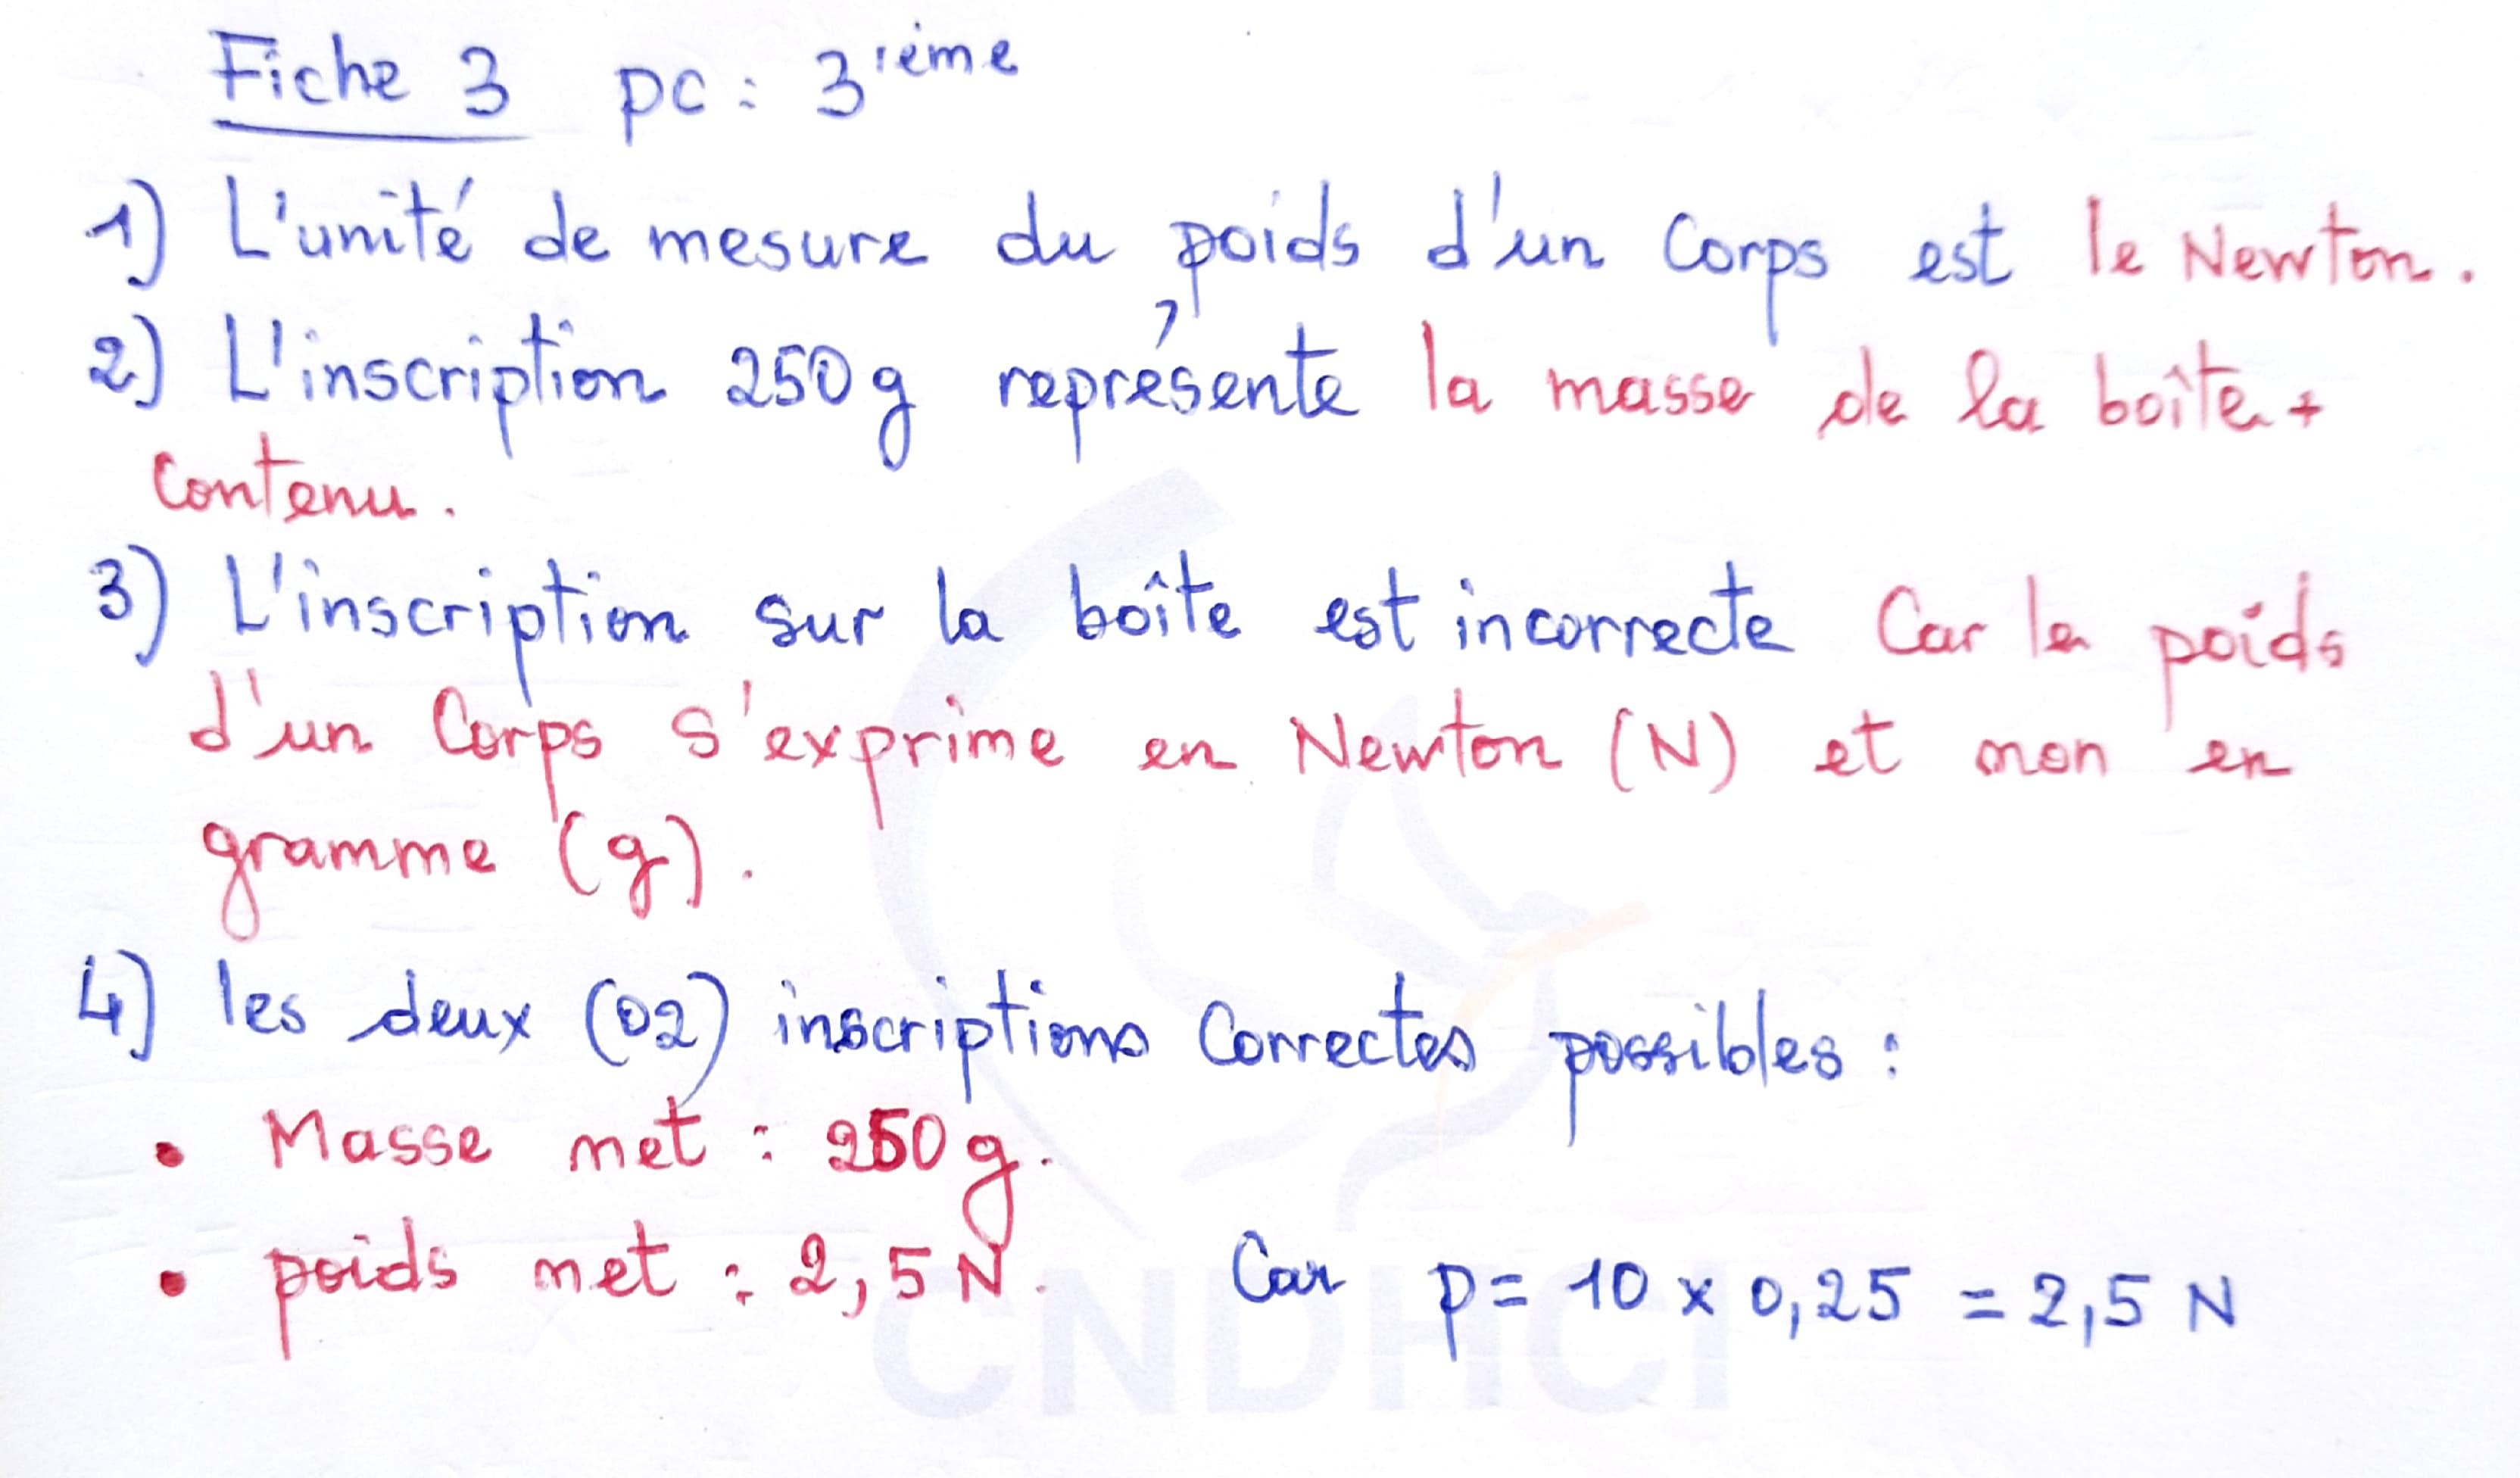 Fiche 3 pc : 3ième
1) L'unité de mesure du poids d'un Corps est le Newton.
2) L'inscription 250g représente la masse de la boîte +
Contenu.
3) L'inscription sur la boîte est incorrecte Car le poids
d'un Corps s'exprime en Newton (N) et non en
gramme (g).
4) les deux (02) inscriptions Correctes possibles :
• Masse net : 250g.
• poids net : 2,5 N. Car p = 10 x 0,25 = 2,5 N
CNDHCI